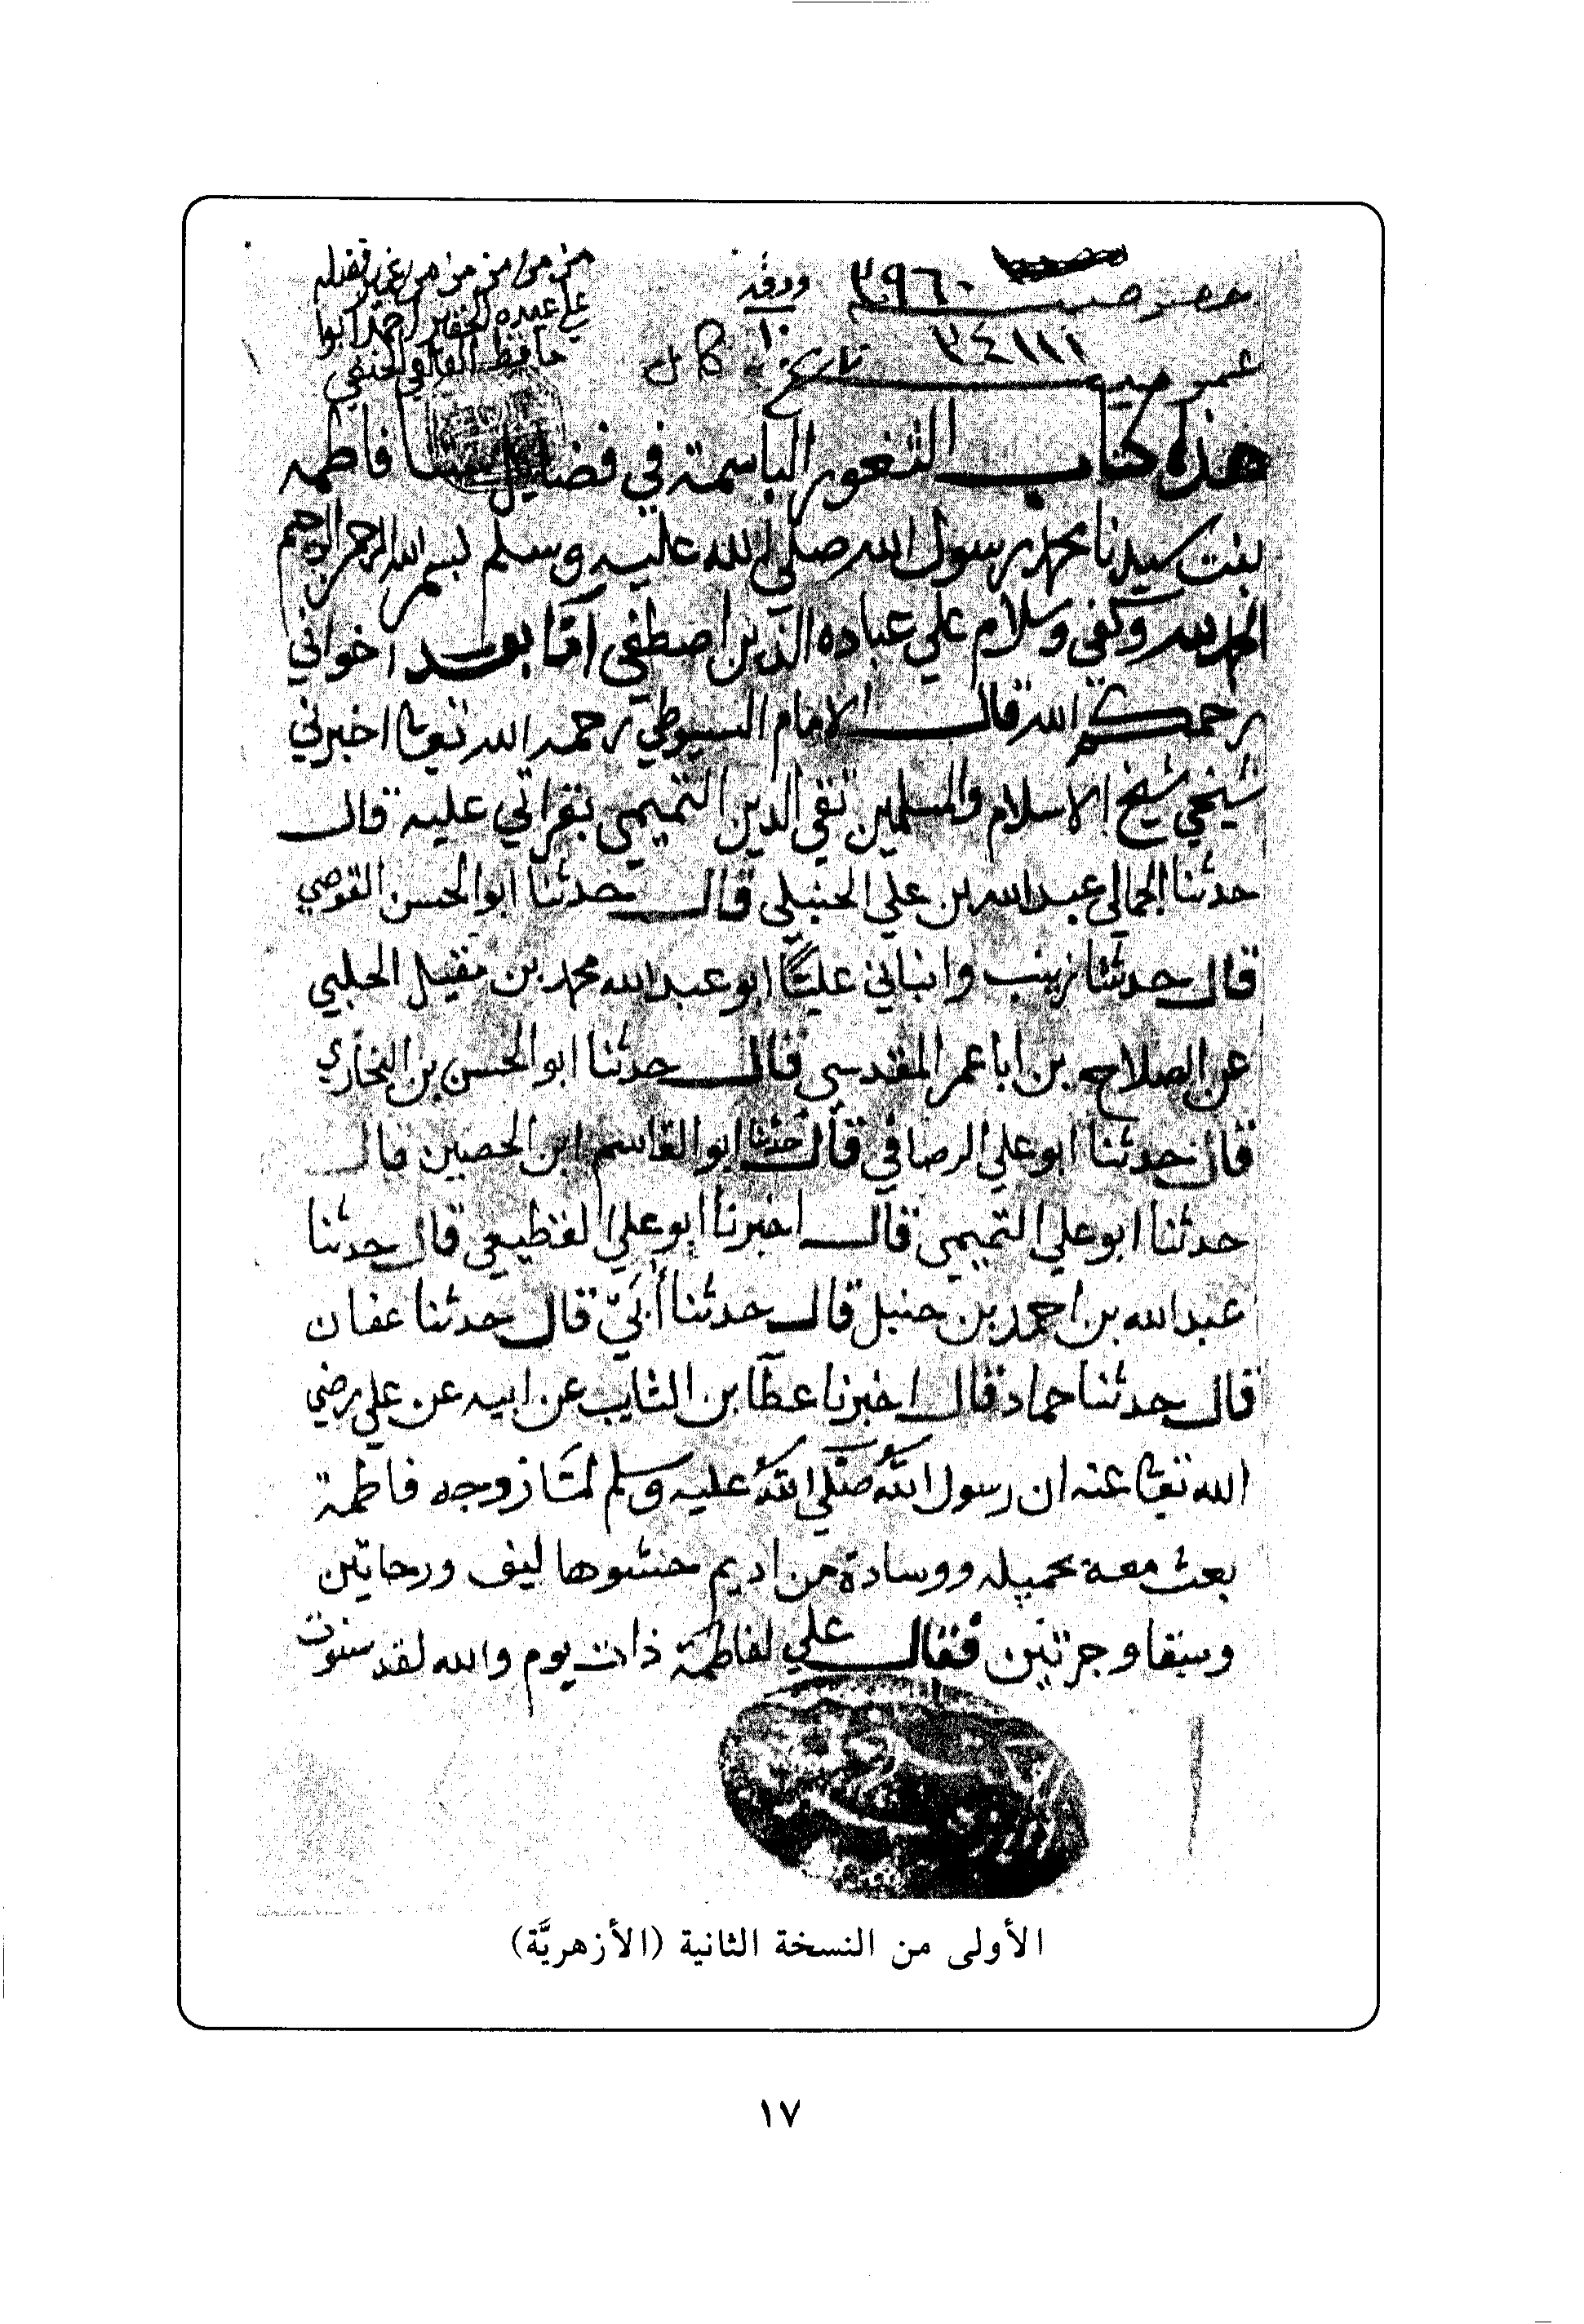 خصوصية ٣٩٦٠
ورقه
١٠
عمومية ٣٤١١١ تاريخ
من من من من من من غير فضله
على عبده الحقير احمد ابوا
حافظ الحنفي
هذا كتاب الثغور الباسمة في فضايل فاطمه
بنت سيدنا محمد رسول الله صلي الله عليه وسلم بسم الله الرحمن الرحيم
الحمد لله وكفي وسلام علي عباده الذين اصطفي اما بعد اخواني
رحمكم الله قال الامام السيوطي رحمه الله تعا اخبرني
شيخي شيخ الاسلام والمسلمين تقي الدين التميمي بقراتي عليه قال
حدثنا الجمالي عبد الله بن علي الحنبلي قال حدثنا ابو الحسن القوصي
قال حدثنا زينب وانباني عليا ابو عبد الله محمد بن مقيل الحلبي
عن الصلاح بن ابا عمر المقدسي قال حدثنا ابو الحسن بن البخاري
قال حدثنا ابو علي الرصافي قال حدثنا ابو القاسم ابن الحصين قال
حدثنا ابو علي التميمي قال اخبرنا ابو علي القطيعي قال حدثنا
عبد الله بن احمد بن حنبل قال حدثنا أبي قال حدثنا عفان
قال حدثنا حماد قال اخبرنا عطا بن الثايب عن ابيه عن علي رضي
الله تعا عنه ان رسول الله صلي الله عليه وسلم لما زوجه فاطمة
بعث معه بحميله ووسادة من اديم حشوها ليف ورحاتين
وسقا وجرتين فقال علي لفاطمة ذات يوم والله لقد سنوت
الأولى من النسخة الثانية (الأزهريَّة)
١٧